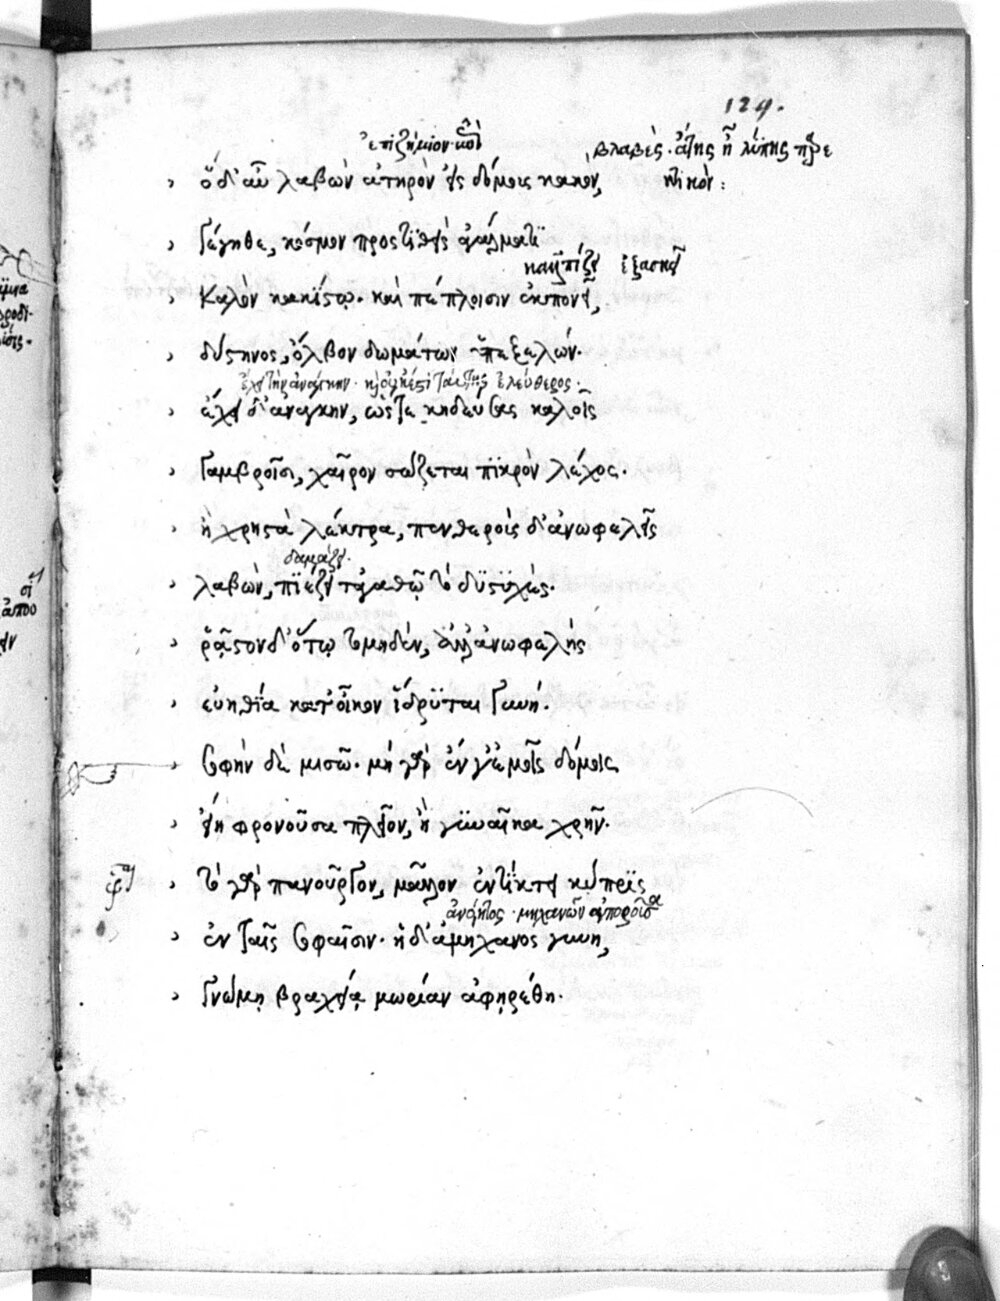 129.
ἐπιζήμιον κακὸν βλαβές. ἄτης ἢ λύπης
ὁ δ' αὖ λαβὼν ἀτηρὸν εἰς δόμοις κακόν,
γέγηθε, κόσμον προστιθεὶς ἀγάλματι
καλλωπίζει ἐξασκεῖ
καλὸν κακίστῳ. καὶ πέπλοισιν ἐκπονεῖ,
δύστηνος, ὄλβον δωμάτων ὑπεξελών.
ἔχει τὴν ἀνάγκην. ἐλεύθερος.
ἔχει δ' ἀνάγκην, ὥστε κηδεύσας καλοῖς
γαμβροῖσι, χαῖρον σώζεται πικρὸν λέχος.
ἢ χρηστὰ λέκτρα, πενθεροὺς δ' ἀνωφελεῖς
δαμάζει.
λαβὼν, πιέζει τἀγαθῷ τὸ δυστυχές.
ῥᾷστον δ' ὅτῳ τὸ μηδέν, ἀλλ' ἀνωφελὴς
εὐηθίᾳ κατ' οἶκον ἵδρυται γυνή.
σοφὴν δὲ μισῶ. μὴ γὰρ ἔν γ' ἐμοῖς δόμοις
εἴη φρονοῦσα πλεῖον, ἢ γυναῖκα χρῆν.
τὸ γὰρ πανοῦργον, μᾶλλον ἐντίκτει κύπρις
ἀνόητος. μηχανῶν ἀποροῦσα
ἐν ταῖς σοφαῖσιν. ἡ δ' ἀμήχανος γυνή,
γνώμῃ βραχείᾳ μωρίαν ἀφῃρέθη.